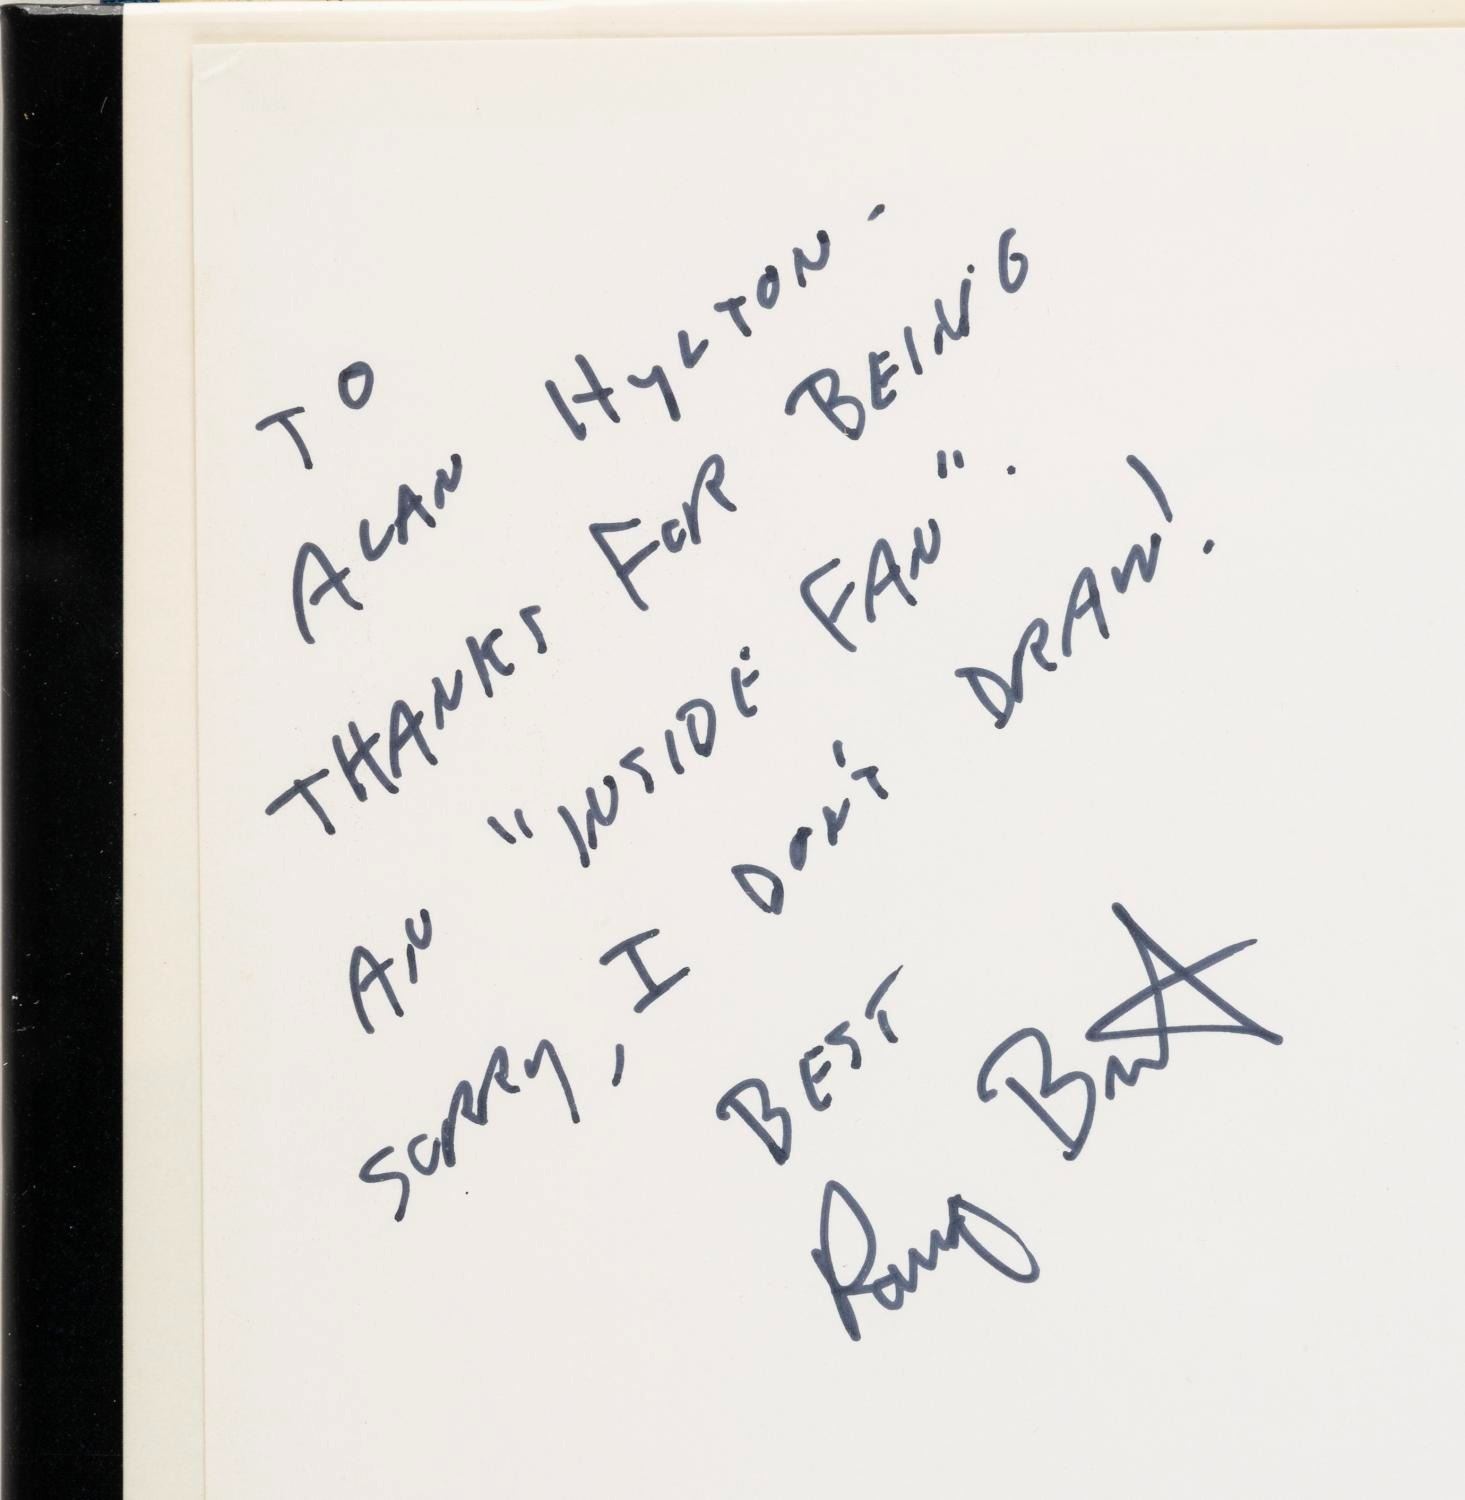 TO
ALAN HYLTON-
THANKS FOR BEING
AN "INSIDE FAN".
SORRY, I DON'T DRAW!
BEST